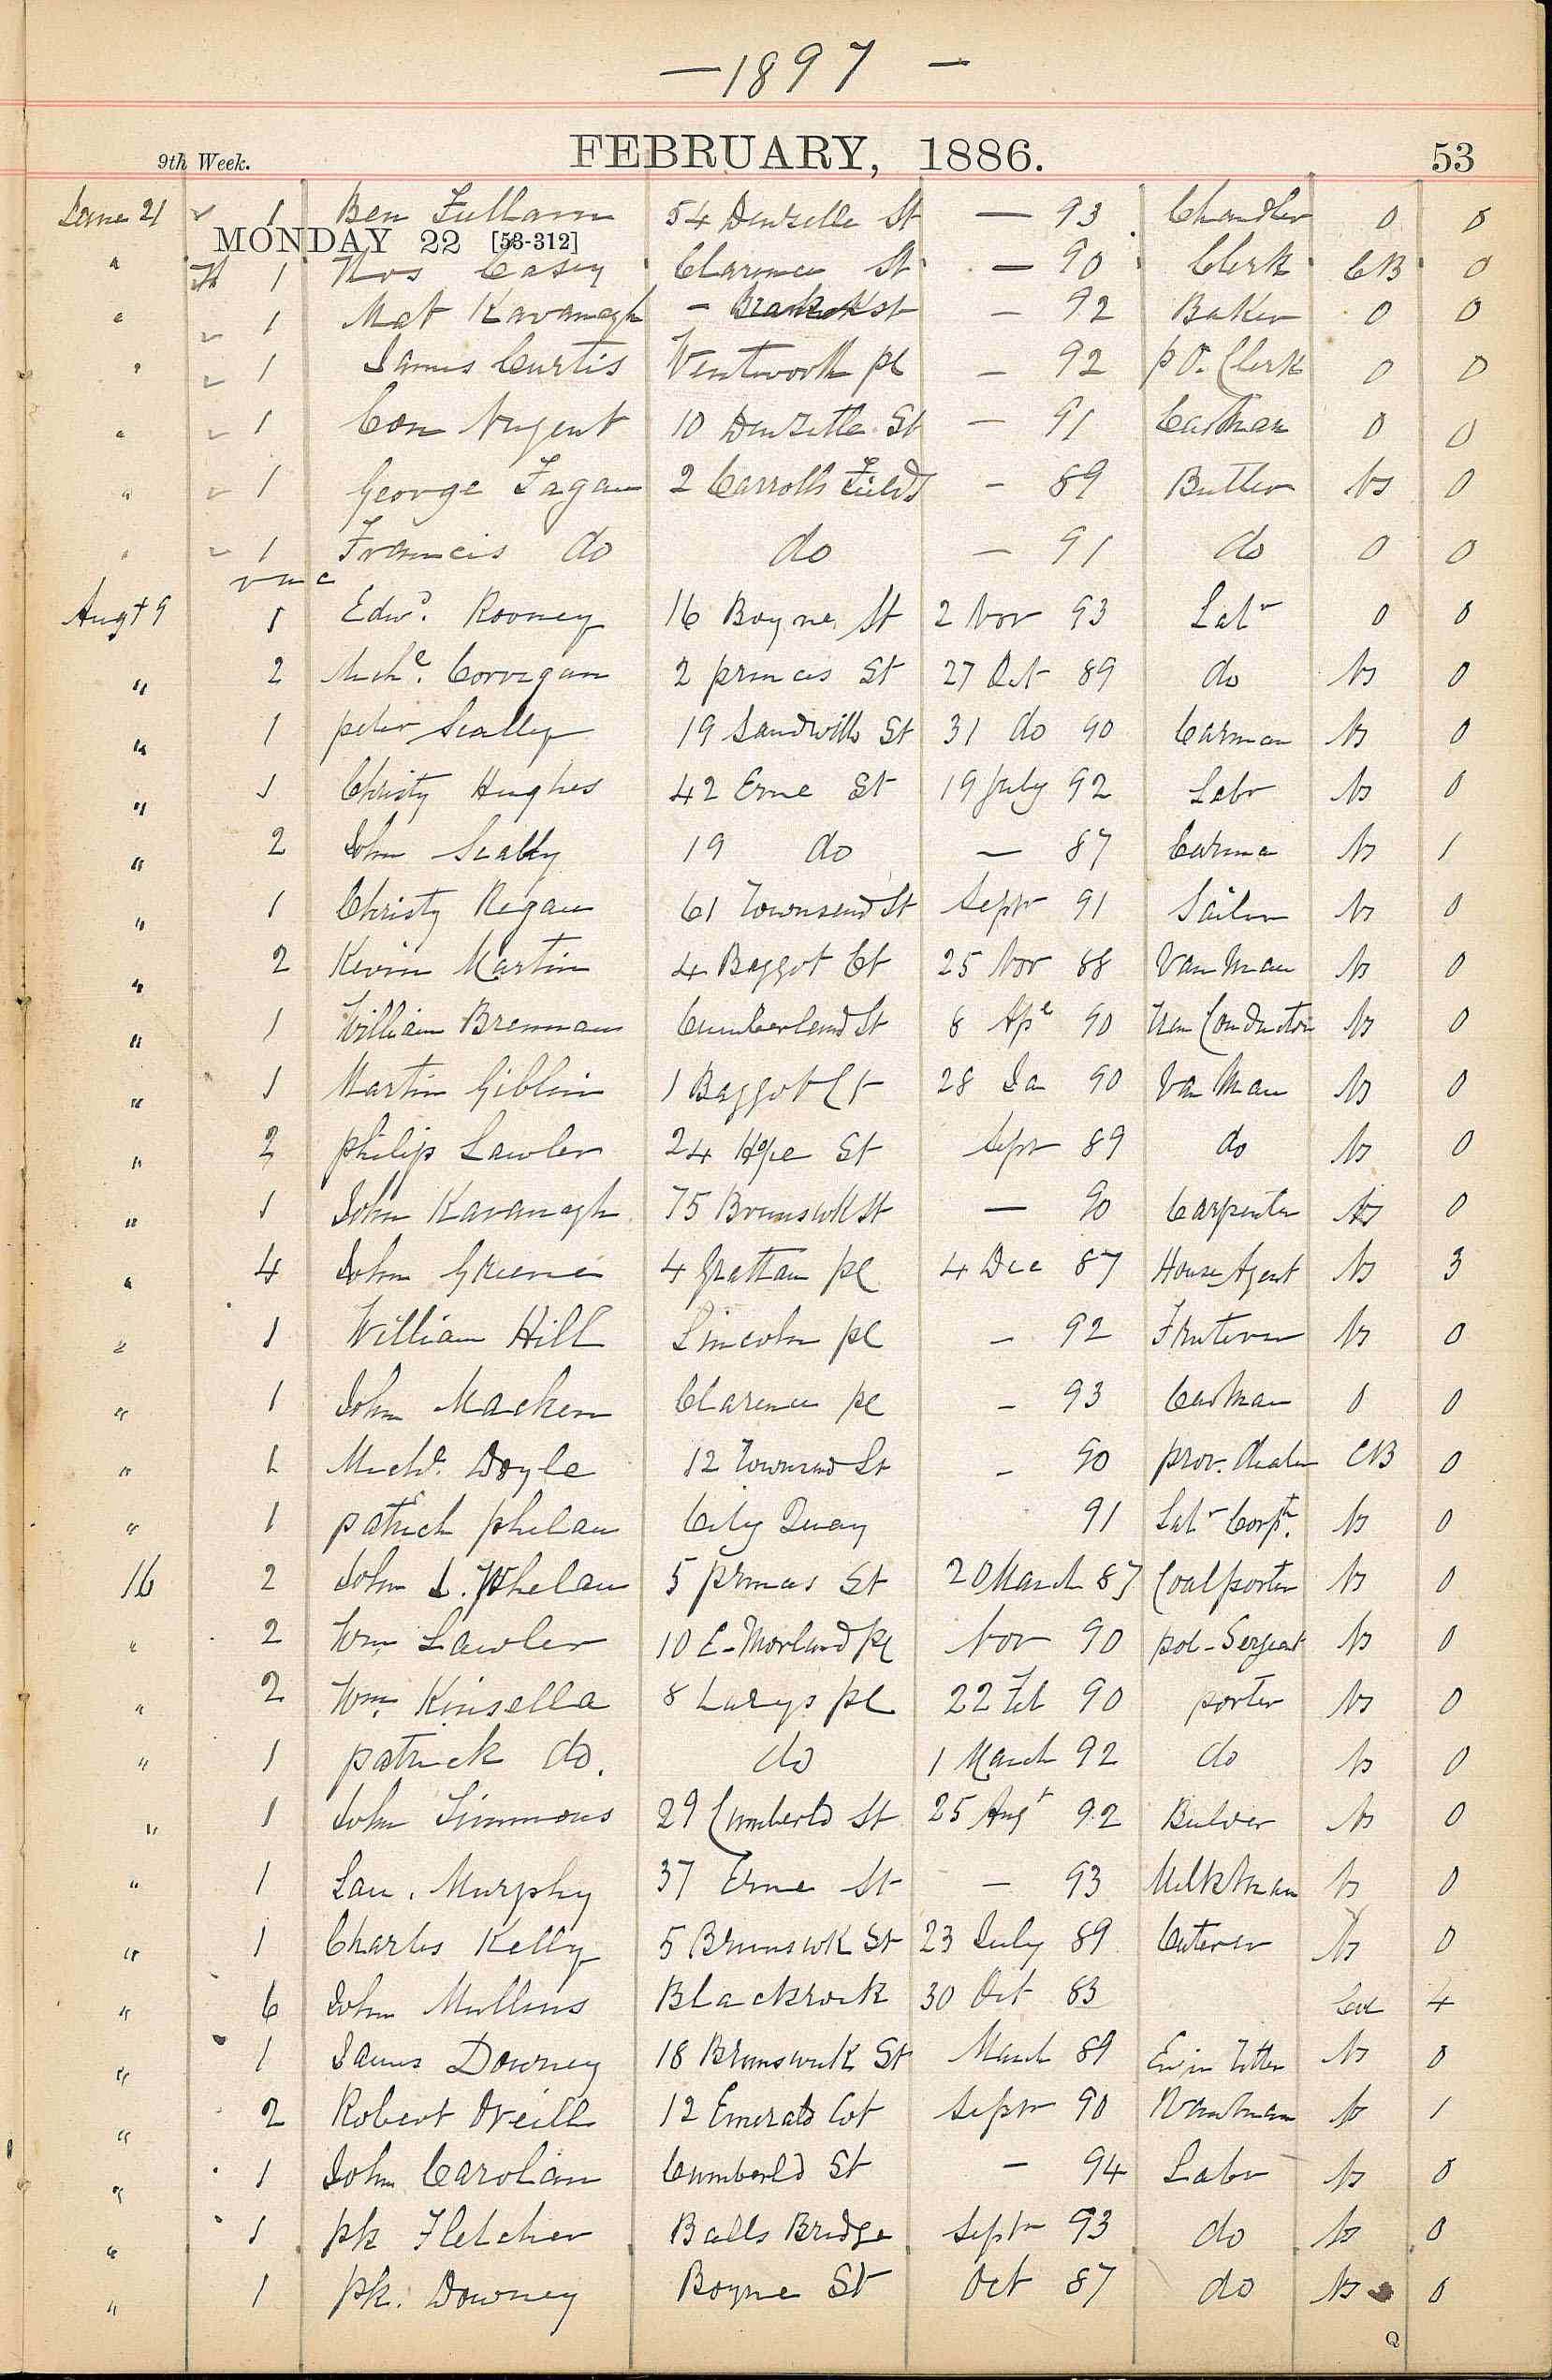 — 1897 —
9th Week. FEBRUARY, 1886. 53
June 21 1 Ben Fullam 54 Denzille St — 93 Chandler 0 0
MONDAY 22 [53-312]
" 1 Thos Casey Clarence St — 90 Clerk CB 0
" 1 Mat Kavanagh — — 92 Baker 0 0
" 1 James Curtis Wentworth pl — 92 P O. Clerk 0 0
" 1 Con Nugent 10 Denzille St — 91 Carman 0 0
" 1 George Fagan 2 Carrolls Fields — 89 Butler Ns 0
" 1 Francis do do — 91 do 0 0
vac
Augt 9 1 Edwd. Rooney 16 Boyne St 2 Nov 93 Labr 0 0
" 2 Michl. Corrigan 2 princes St 27 Oct 89 do Ns 0
" 1 peter Scally 19 Sandwith St 31 do 90 Carman Ns 0
" 1 Christy Hughes 42 Erne St 19 July 92 Labr Ns 0
" 2 John Scally 19 do — 87 Carman Ns 1
" 1 Christy Regan 61 Townsend St Septr 91 Sailor Ns 0
" 2 Kevin Martin 4 Baggot Ct 25 Nov 88 Van Man Ns 0
" 1 William Brennan Cumberland St 8 Apl 90 Tram Conductor Ns 0
" 1 Martin Giblin 1 Baggot Ct 28 Ja 90 Van Man Ns 0
" 2 philip Lawler 24 Hope St Sepr 89 do Ns 0
" 1 John Kavanagh 75 Brunswk St — 90 Carpenter Ns 0
" 4 John Greene 4 Grattan pl 4 Dec 87 House Agent Ns 3
" 1 William Hill Lincoln pl — 92 Fruterer Ns 0
" 1 John Macken Clarence pl — 93 Carman 0 0
" 1 Michl. Doyle 12 Townsend St — 90 prov. dealer CB 0
" 1 patrick phelan City Quay 91 Labr Corpn. Ns 0
16 2 John J. Whelan 5 princes St 20 March 87 Coalporter Ns 0
" 2 Wm Lawler 10 E-Morland pl Nov 90 pol-Sergeant Ns 0
" 2 Wm. Kinsella 8 Lacys pl 22 Feb 90 porter Ns 0
" 1 patrick do. do 1 March 92 do Ns 0
" 1 John Timmons 29 Cumberld St 25 Augt 92 Bulder Ns 0
" 1 Lau. Murphy 37 Erne St — 93 Milkman Ns 0
" 1 Charles Kelly 5 Brunswk St 23 July 89 Caterer Ns 0
" 6 John Mullins Blackrock 30 Oct 83 4
" 1 James Downey 18 Brunswick St March 89 Engin fitter Ns 0
" 2 Robert O'Neill 12 Emerald Cot Septr 90 Vanman Ns 1
" 1 John Carolan Cumberld St — 94 Labr Ns 0
" 1 pk Fletcher Balls Bridge Septr 93 do Ns 0
" 1 pk. Downey Boyne St Oct 87 do Ns 0
Q